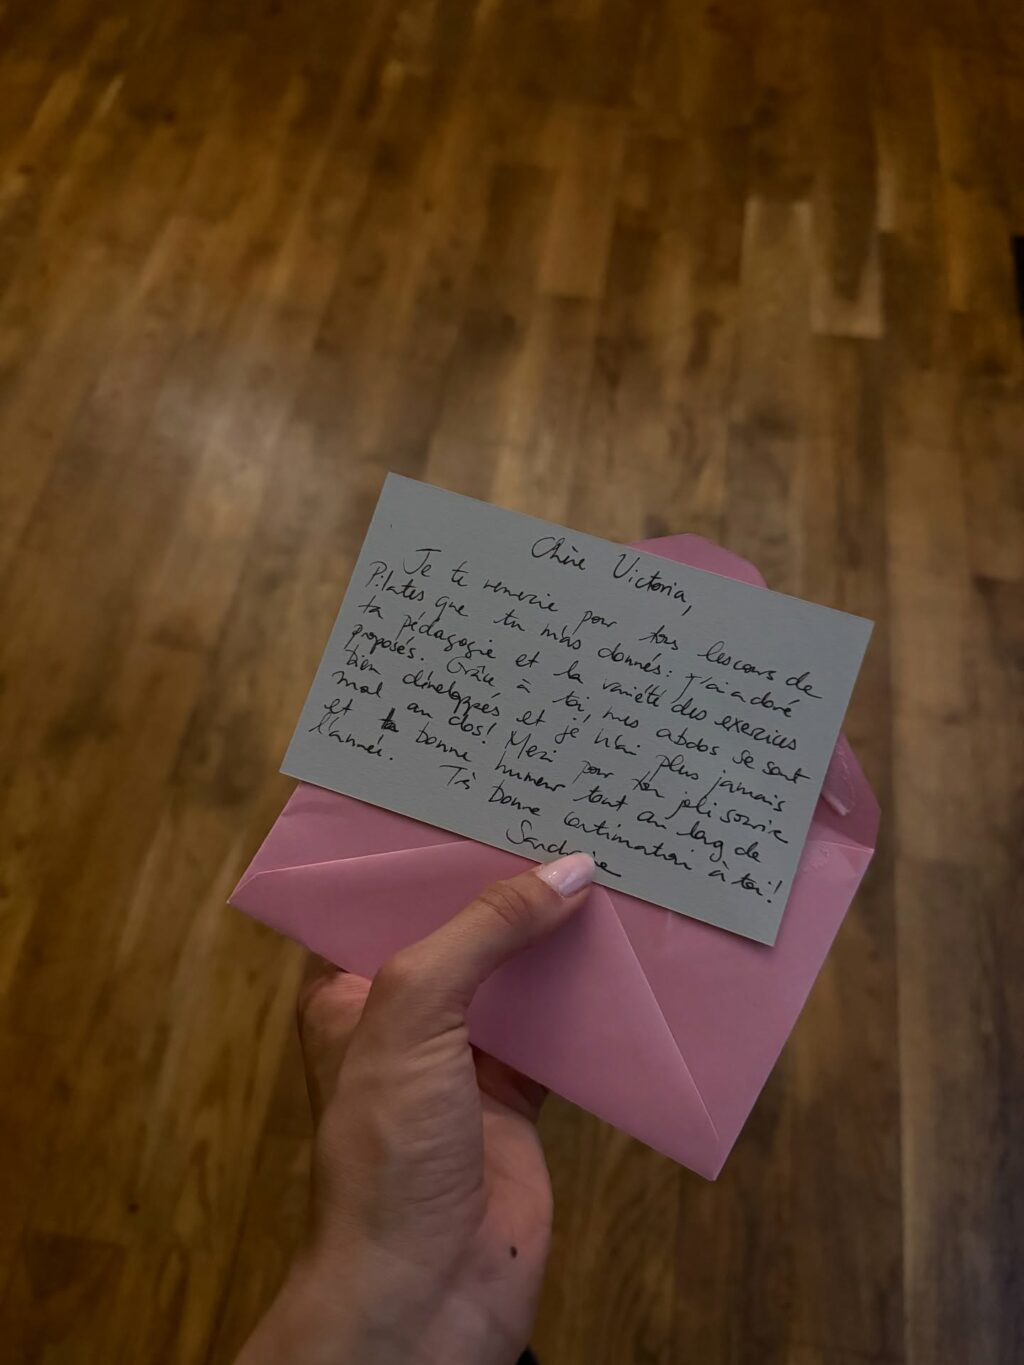 Chère Victoria,
Je te remercie pour tous les cours de
Pilates que tu m'as donnés : j'ai adoré
ta pédagogie et la variété des exercices
proposés. Grâce à toi, mes abdos se sont
bien développés et je n'ai plus jamais
mal au dos ! Merci pour ton joli sourire
et ta bonne humeur tout au long de
l'année. Très bonne continuation à toi !